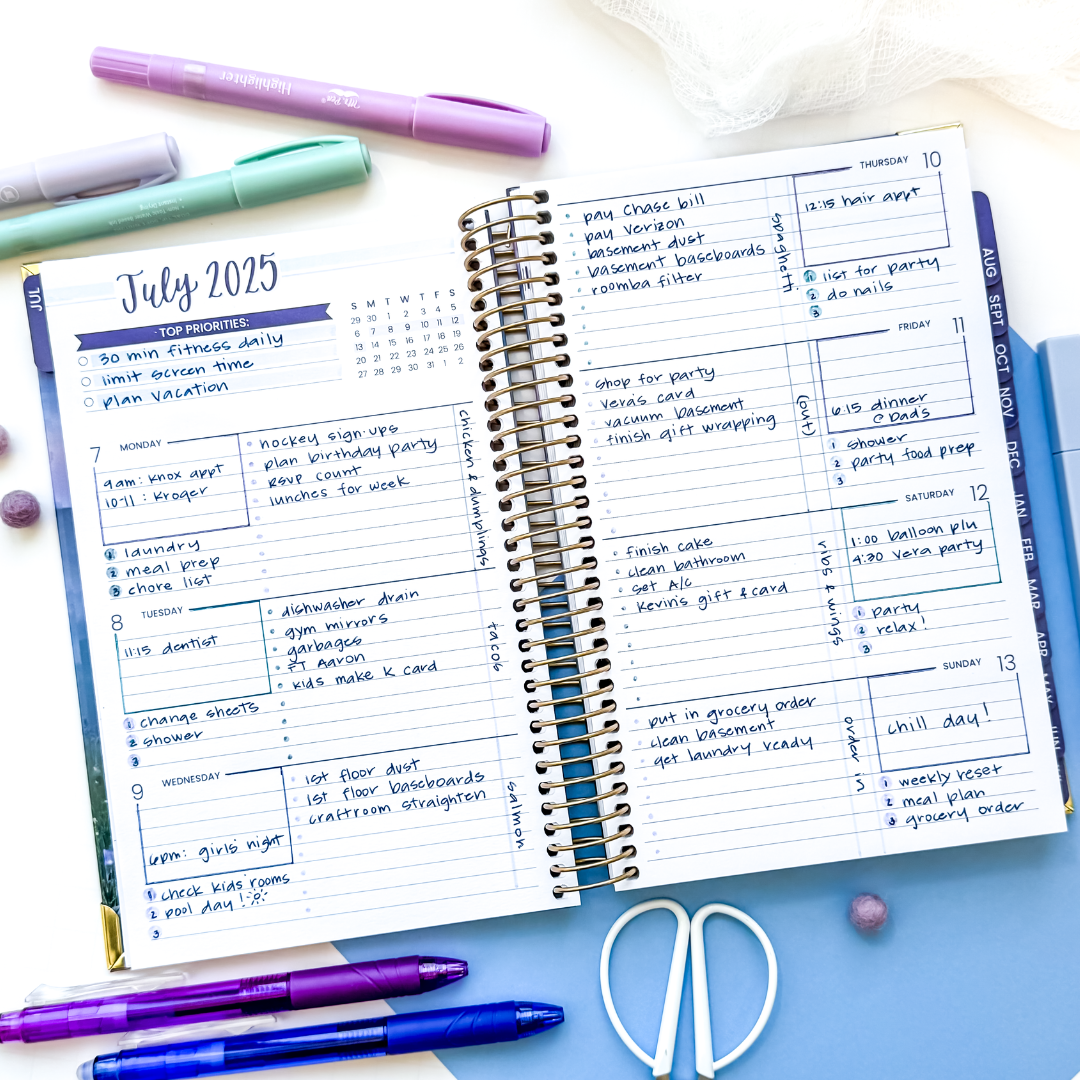 Highlighter
Mr. Pen
JUL
July 2025
TOP PRIORITIES:
30 min fitness daily
limit screen time
plan vacation
S M T W T F S
29 30 1 2 3 4 5
6 7 8 9 10 11 12
13 14 15 16 17 18 19
20 21 22 23 24 25 26
27 28 29 30 31 1 2
7 MONDAY
9am: knox appt
10-11: Kroger
1 laundry
2 meal prep
3 chore list
hockey sign-ups
plan birthday party
RSVP count
lunches for week
chicken & dumplings
8 TUESDAY
11:15 dentist
1 change sheets
2 shower
3
dishwasher drain
gym mirrors
garbages
FT Aaron
kids make K card
tacos
9 WEDNESDAY
6pm: girls night
1 check kids' rooms
2 pool day!
3
1st floor dust
1st floor baseboards
craftroom straighten
salmon
THURSDAY 10
pay Chase bill
pay Verizon
basement dust
basement baseboards
roomba filter
spaghetti
12:15 hair appt
1 list for party
2 do nails
3
FRIDAY 11
shop for party
vera's card
vacuum basement
finish gift wrapping
(out)
6:15 dinner
@ Dad's
1 shower
2 party food prep
3
SATURDAY 12
finish cake
clean bathroom
set A/C
Kevin's gift & card
ribs & wings
1:00 balloon plu
4:30 vera party
1 party
2 relax!
3
SUNDAY 13
put in grocery order
clean basement
get laundry ready
order in
chill day!
1 weekly reset
2 meal plan
3 grocery order
AUG
SEPT
OCT
NOV
DEC
JAN
FEB
MAR
APR
MAY
JUN